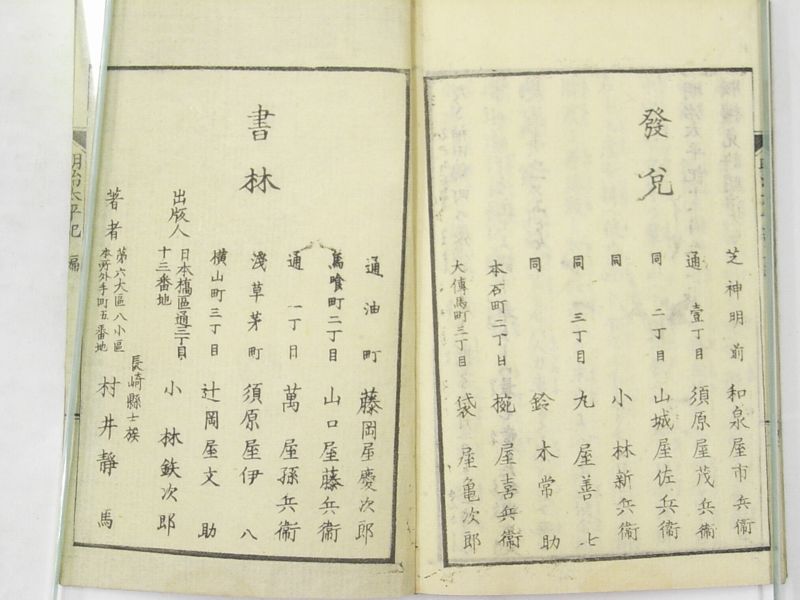 發兌
芝神明前 和泉屋市兵衞
通壹丁目 須原屋茂兵衞
同二丁目 山城屋佐兵衞
同 小林新兵衞
同三丁目 丸屋善七
同 鈴木常助
本石町二丁目 椀屋喜兵衞
大傳馬町三丁目 袋屋亀次郎
書林
通油町 藤岡屋慶次郎
馬喰町二丁目 山口屋藤兵衞
通一丁目 萬屋孫兵衞
淺草茅町 須原屋伊八
横山町三丁目 辻岡屋文助
出版人 日本橋區通三丁目十三番地 小林鉄次郎
著者 第六大區八小區本所外手町五番地 長崎縣士族 村井靜馬
明治太平記 編